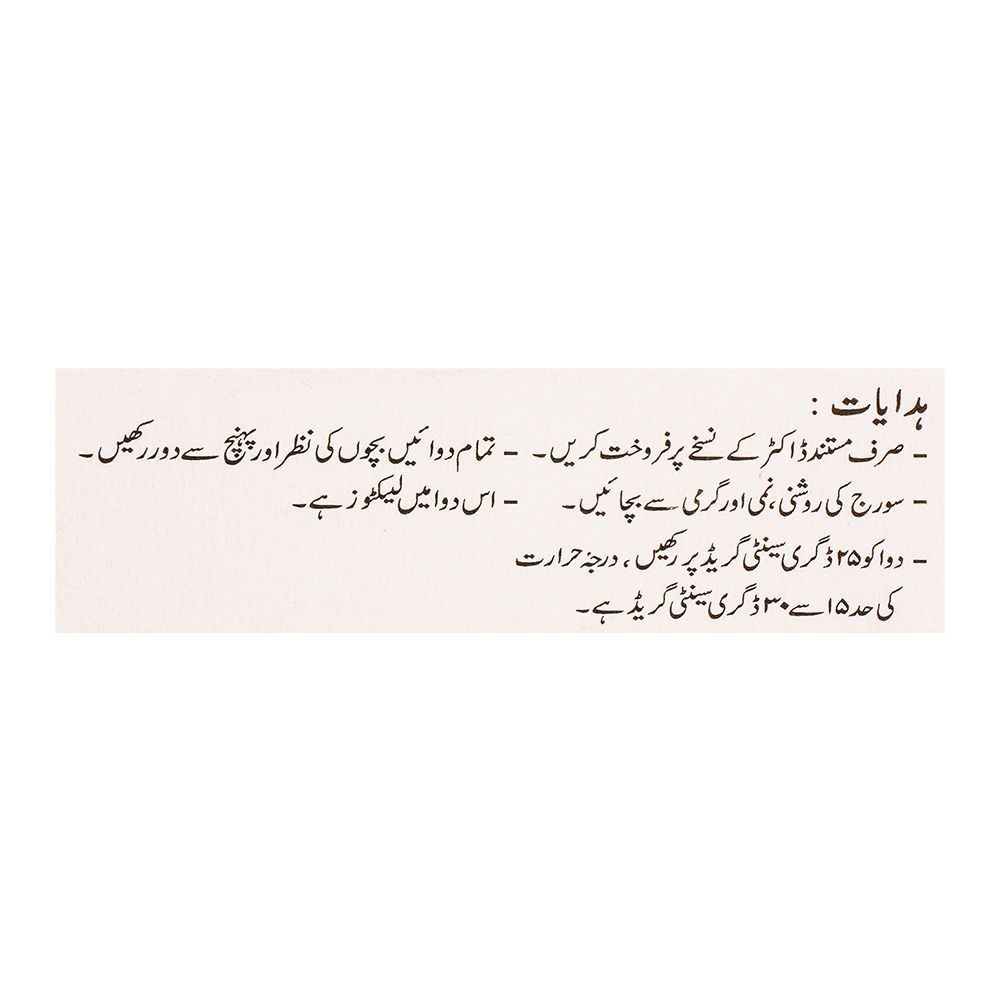 ہدایات :
- صرف مستند ڈاکٹر کے نسخے پر فروخت کریں۔ - تمام دوائیں بچوں کی نظر اور پہنچ سے دور رکھیں۔
- سورج کی روشنی، نمی اور گرمی سے بچائیں۔ - اس دوا میں لیکٹوز ہے۔
- دوا کو ۲۵ ڈگری سینٹی گریڈ پر رکھیں، درجۂ حرارت
کی حد ۱۵ سے ۳۰ ڈگری سینٹی گریڈ ہے۔